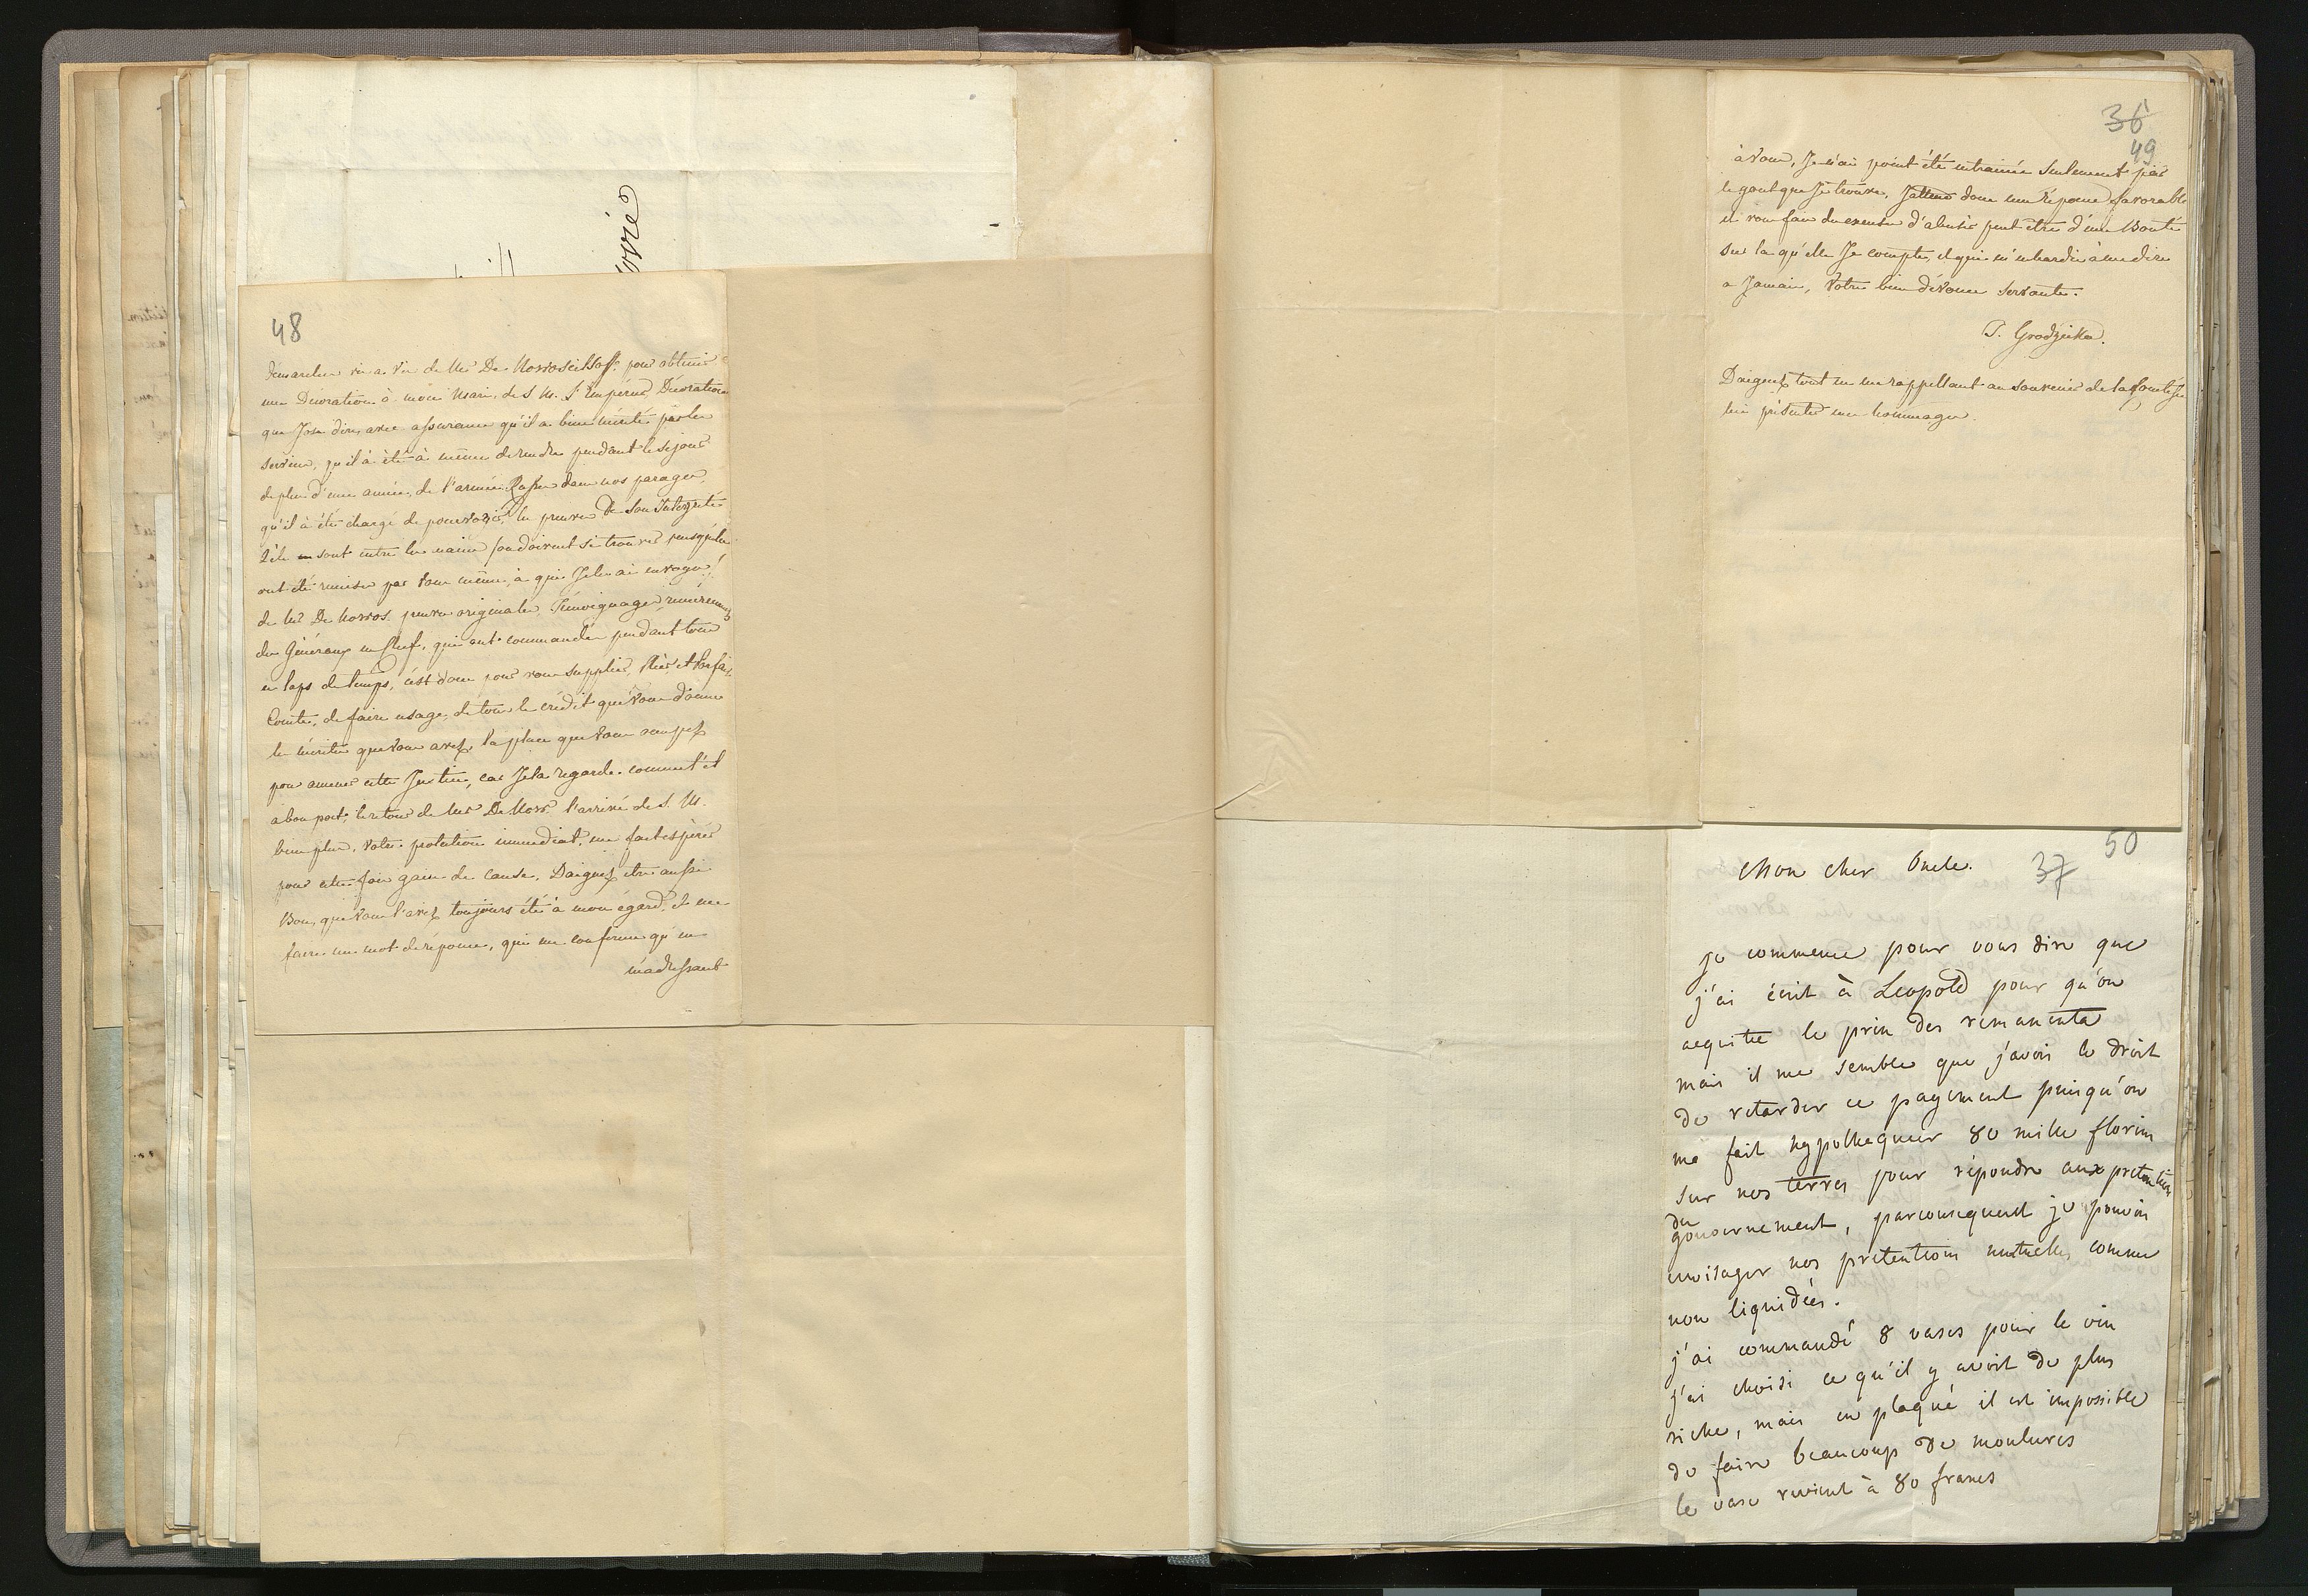 48
démarches vis a vis de Mr De Novosciltzoff pour obtenir
une Décoration à mon Mari, de S. M. l'Empereur, Décoration
que J'ose dire, avec assurance qu'il a bien mérité par les
services, qu'il à été à même de rendre pendant le séjour
de plus d'une année, de l'armée Russe dans nos parages,
qu'il à été chargé de pourvoir, les preuves de son Intégrité
Zèle sont entre les mains (ou doivent se trouver puisqu'elles
ont été remises par vous même, à qui Je les ai envoyé)
de Mr De Novos. preuves originales, Témoignages
des Généraux en Chef, qui ont commandés pendant tout
ce laps de temps, c'est donc pour vous supplier, cher et
Comte, de faire usage, de tout le crédit que vous donne
le mérite que vous avez, la place que vous occupez
pour amener cette Justice, car Je la regarde comme t'el
a bon port, le retour de Mr De Novos. l'arrivé de S. M.
bien plus, votre protection immédiat, me fait espérer
pour cette fois gain de cause, Daignez être aussi
Bon, que vous l'avez toujours été à mon égard, et me
faire un mot de réponse, qui me confirme qu'en
m'adressant
ovie
36
49
à vous, Je n'ai point été entrainée seulement par
le gout que J'y trouve, J'attens donc une réponse favorable
et vous fais des excuses d'abuser peut être d'une Bonté
sur la qu'elle Je compte, et qui m'enhardie à me dire
a Jamais, votre bien dévouée servante.
T. Grodzicka.
Daignez tout en me rappellant au souvenir de la
lui présenter mes hommages.
50
37
Mon cher Oncle.
je commence pour vous dire que
j'ai écrit à Leopold pour qu'on
acquitte le prix des remanenta
mais il me semble que j'avois le droit
de retarder ce payement puisqu'on
ma fait hypothequer 80 mille florins
sur nos terres pour répondre aux pretentions
du
gouvernement, parconsequent je pouvois
envisager nos pretentions mutuelles comme
non liquidées.
j'ai commandé 8 vases pour le vin
j'ai choisi ce qu'il y avoit de plus
riche, mais en plaqué il est impossible
de faire beaucoup de moulures
le vase revient à 80 francs